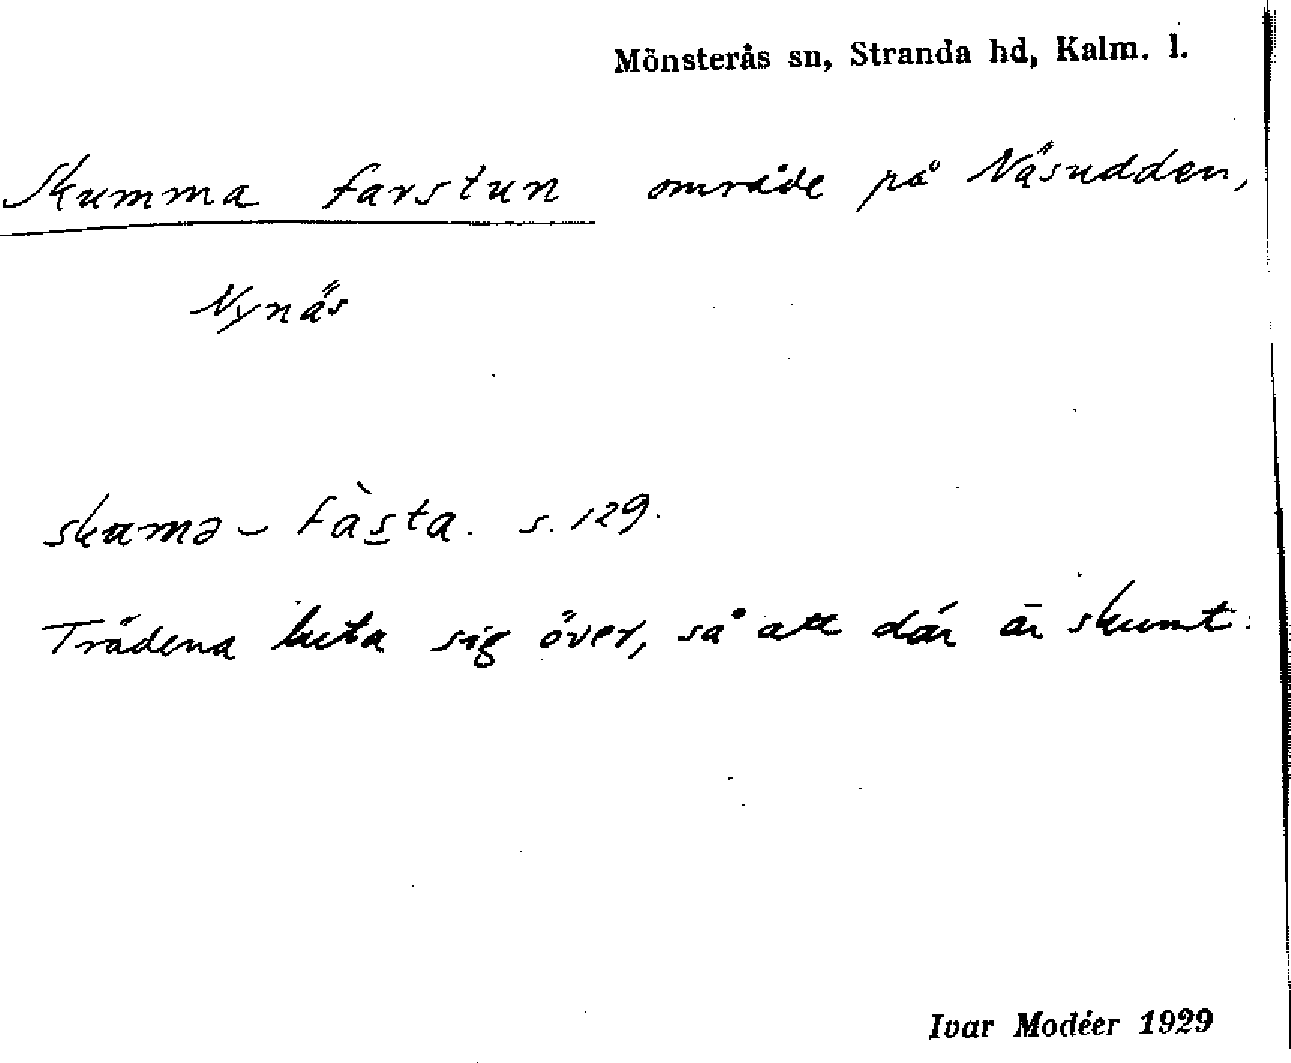 Mönsterås sn, Stranda hd, Kalm. l.
Skumma farstun område på Näsudden,
Nynäs
skumə- fàsta. s. 129.
Trädena luta sig över, så att där är skumt.
Ivar Modéer 1929